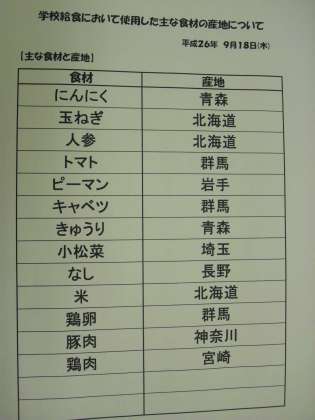 学校給食において使用した主な食材の産地について
平成26年 9月18日(木)
【主な食材と産地】
食材 産地
にんにく 青森
玉ねぎ 北海道
人参 北海道
トマト 群馬
ピーマン 岩手
キャベツ 群馬
きゅうり 青森
小松菜 埼玉
なし 長野
米 北海道
鶏卵 群馬
豚肉 神奈川
鶏肉 宮崎